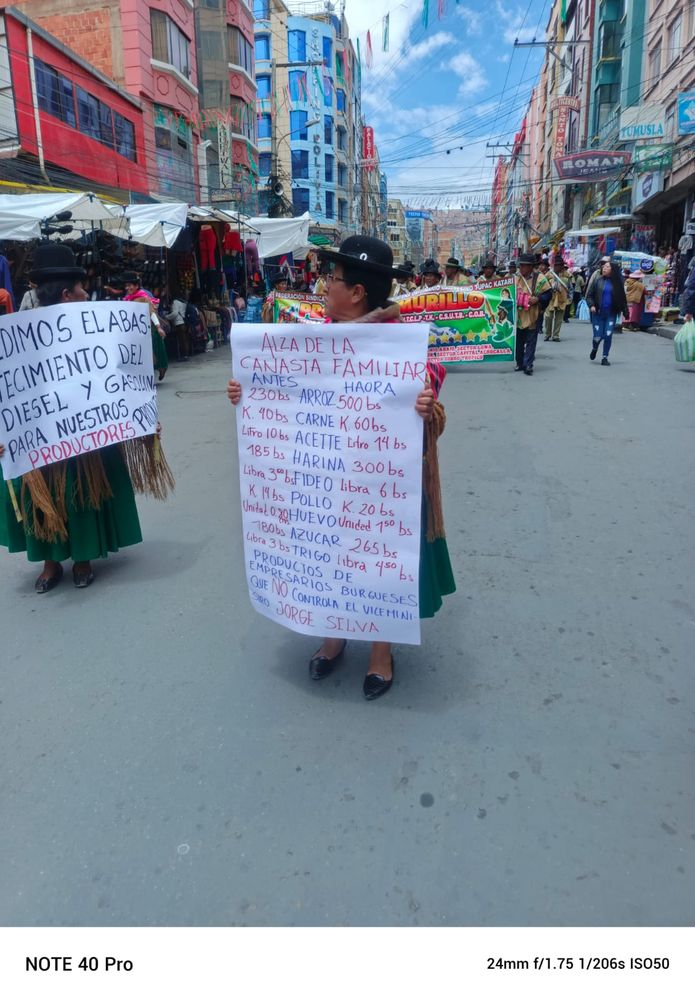 EDIMOS EL ABAS-
TECIMIENTO DEL
DIESEL Y GASOLINA
PARA NUESTROS
PRODUCTORES
ALZA DE LA
CANASTA FAMILIAR
ANTES HAORA
230 bs ARROZ 500 bs
K. 40 bs CARNE K. 60 bs
Litro 10 bs ACETTE Litro 14 bs
185 bs HARINA 300 bs
Libra 3⁵⁰ bs FIDEO Libra 6 bs
K. 14 bs POLLO K. 20 bs
Unidad 0.80 HUEVO Unidad 1⁵⁰ bs
180 bs AZUCAR 265 bs
Libra 3 bs TRIGO Libra 4⁵⁰ bs
PRODUCTOS DE
EMPRESARIOS BURGUESES
QUE NO CONTROLA EL VICEMINI-
STRO JORGE SILVA
FEDERACIÓN SINDICAL
TUPAC KATARI
MURILLO
ROMAN
JEANS
TUMUSLA
NOTE 40 Pro
24mm f/1.75 1/206s ISO50